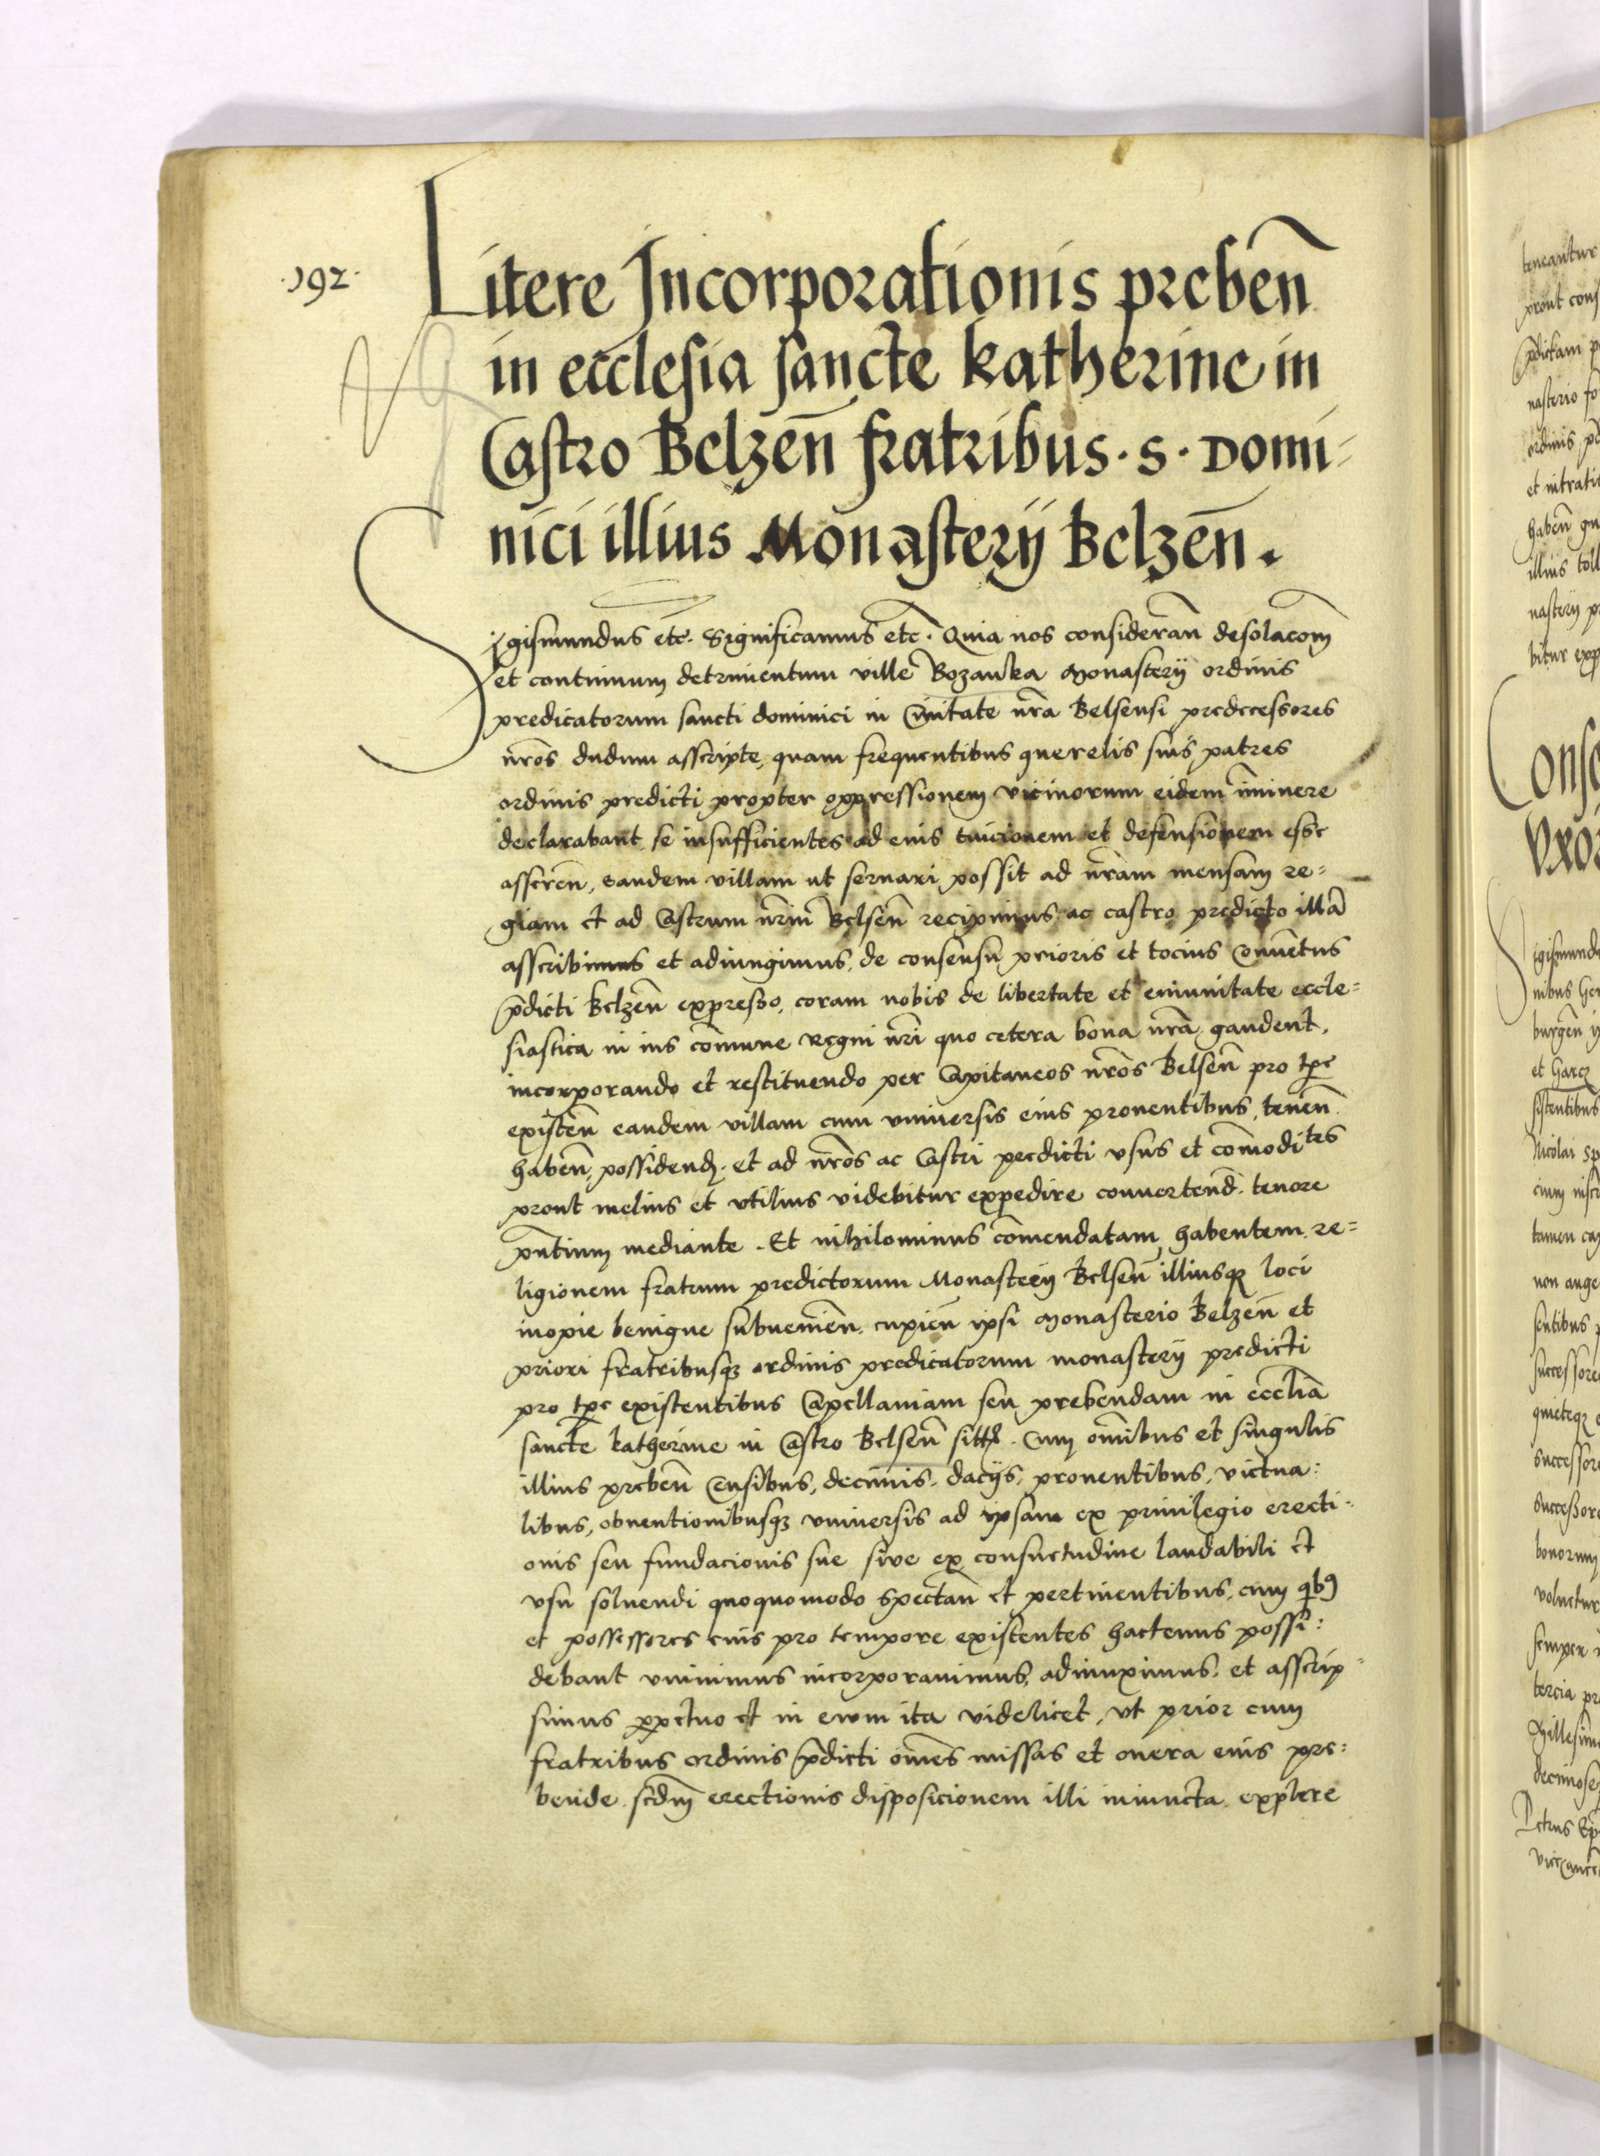 ·192·
Litere Incorporationis prebeñ
in ecclesia sancte Katherine in
Castro Belzeñ fratribus · S · Domi-
nici illius Monasterij Belzeñ .
Sigismundus etc. Significamus etc. Quia nos consideran̄ desolacom̄
et continuum detrimentum ville Bozanka Monasterij ordinis
predicatorum sancti dominici in Civitate nr̄a Belsensi predecessores
nr̄os dudum asscripte, quam frequentibus querelis suis patres
ordinis predicti propter oppressionem vicinorum eidem im̄inere
declarabant, se insufficientes ad eius tuicionem et defensionem esse
asseren̄, eandem villam ut servari possit ad nr̄am mensam re-
giam et ad Castrum nr̄m̄ Belsen̄ recipimus ac castro predicto illā
asscribimus et adiungimus, de consensu prioris et tocius Conven̄tus
p̄dicti Belzen̄ expresso, coram nobis de libertate et emunitate eccle-
siastica in ius com̄une Regni nr̄i quo cetera bona nr̄a gaudent,
incorporando et restituendo per Capitaneos nr̄os Belsen̄ pro tp̄e
existen̄ eandem villam cum universis eius proventibus, tenen̄
haben̄, possidend̄. et ad nr̄os ac Castri predicti usus et com̄oditēs
prout melius et utilius videbitur expedire convertend̄. tenore
pn̄tium mediante . Et nihilominus com̄endatam habentem re-
ligionem fratrum predictorum Monasterij Belsen̄ illiusq; loci
inopie benigne subvenien̄, cupien̄ ipsi Monasterio Belzen̄ et
priori fratribusq; ordinis predicatorum monasterij predicti
pro tp̄e existentibus Capellaniam seu prebendam in eccl̄ia
sancte katherine in Castro Belsen̄ sitā . Cum om̄ibus et singulis
illius preben̄ Censibus, decimis, dacijs, proventibus, victua:
libus, obventionibusq; universis ad ipsam ex privilegio erecti-
onis seu fundacionis sue sive ex consuetudine laudabili et
usu solvendi quoquomodo spectan̄ et pertinentibus, cum qb9
et possessores eius pro tempore existentes hactenus possi:
debant univimus incorporavimus, adiunximus, et asscrip-
simus ꝑpetuo et in evum ita videlicet, ut prior cum
fratribus ordinis p̄dicti om̄es missas et onera eius pre:
bende scdm̄ erectionis disposicionem illi iniuncta explere